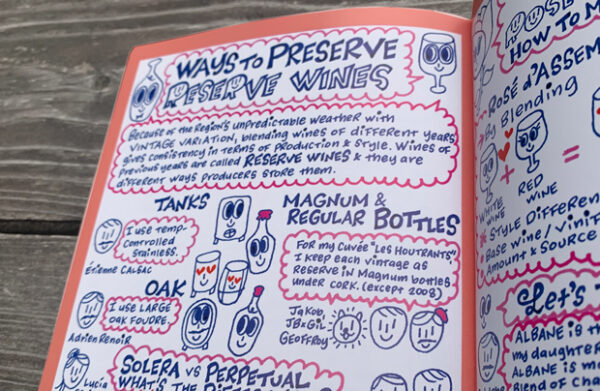 WAYS TO PRESERVE
RESERVE WINES
BECAUSE OF THE REGION'S UNPREDICTABLE WEATHER WITH
VINTAGE VARIATION, BLENDING WINES OF DIFFERENT YEARS
GIVES CONSISTENCY IN TERMS OF PRODUCTION & STYLE. WINES OF
PREVIOUS YEARS ARE CALLED RESERVE WINES & THEY ARE
DIFFERENT WAYS PRODUCERS STORE THEM.
TANKS
I USE TEMP-
CONTROLLED
STAINLESS.
ÉTIENNE CALSAC
OAK
I USE LARGE
OAK FOUDRE.
Adrien Renoir
MAGNUM &
REGULAR BOTTLES
FOR MY CUVÉE "LES HOUTRANTS",
I KEEP EACH VINTAGE AS
RESERVE IN MAGNUM BOTTLES
UNDER CORK. (EXCEPT 2003)
JaKob
JB & GiL
GEOFFROY
SOLERA VS PERPETUAL
WHAT'S THE
Lucia
HOW TO M
ROSÉ d'ASSEM
By Blending
+
=
WHITE
WINE
RED
WINE
STYLE DIFFEREN
BASE WINE / VINIF
AMOUNT & SOURCE
Let's
ALBANE IS TH
MY DAUGHTER
ALBANE IS MA
BLEND OF CH